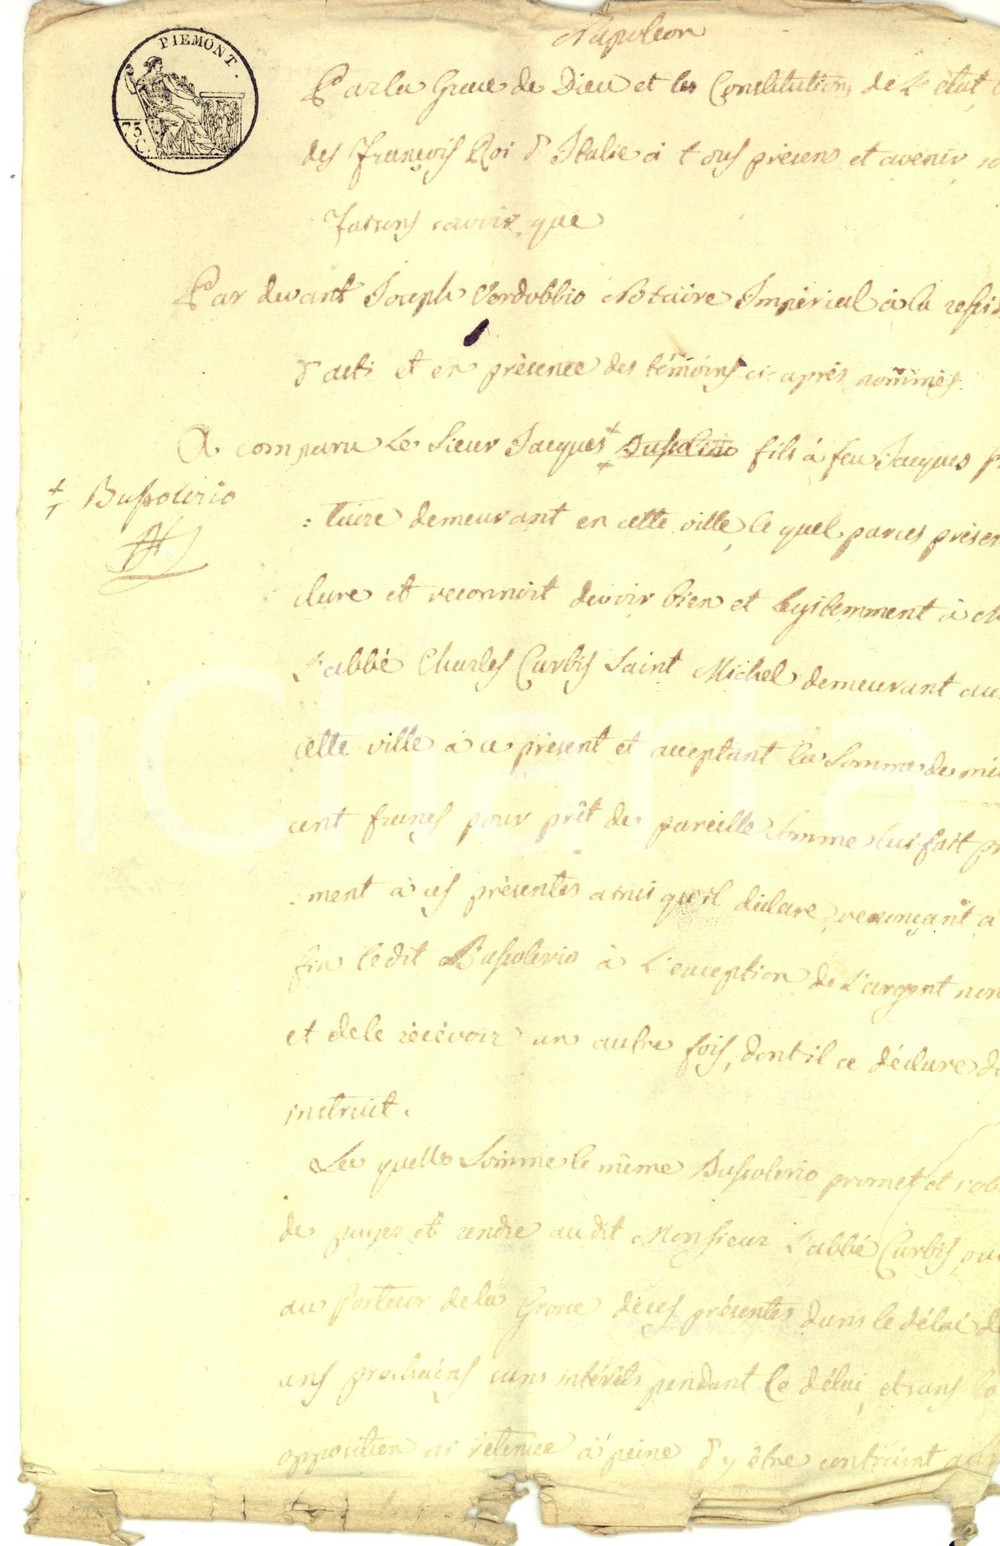 PIEMONT.
75
C.
Napoleon
Par la Grace de Dieu et les Constitutions de L'état
des françois Roi d'Italie à tous présens et avenir
faisons savoir que
Par devant Joseph Cordobbio Notaire Impérial à la resid
d'asti et en présence des témoins ci après nommés.
A comparu Le Sieur Jacques fils à feu Jacques
+ Bussolerio
: taire demeurant en cette ville, le quel par ces présen
clare et reconnoit devoir bien et legitemment à
L'abbé Charles Curbis Saint Michel demeurant au
cette ville à ce present et acceptant la Somme de
cent francs pour prêt de pareille Somme lui fait
: ment à ces présentes ainsi qu'il déclare, renonçant a
fin le dit Bussolerio à L'exception de L'argent non
et de le récévoir un autre fois, dont il ce déclare
instruit.
La quelle Somme le même Bussolerio promet et s'ob
de payer et rendre au dit Monsieur L'abbé Curbis, ou
au porteur de la Grosse de ces présentes dans le délai de
ans prochains sans intérêts pendant ce délai, et sans
opposition ni retenue à peine d'y être contraint
iCharta